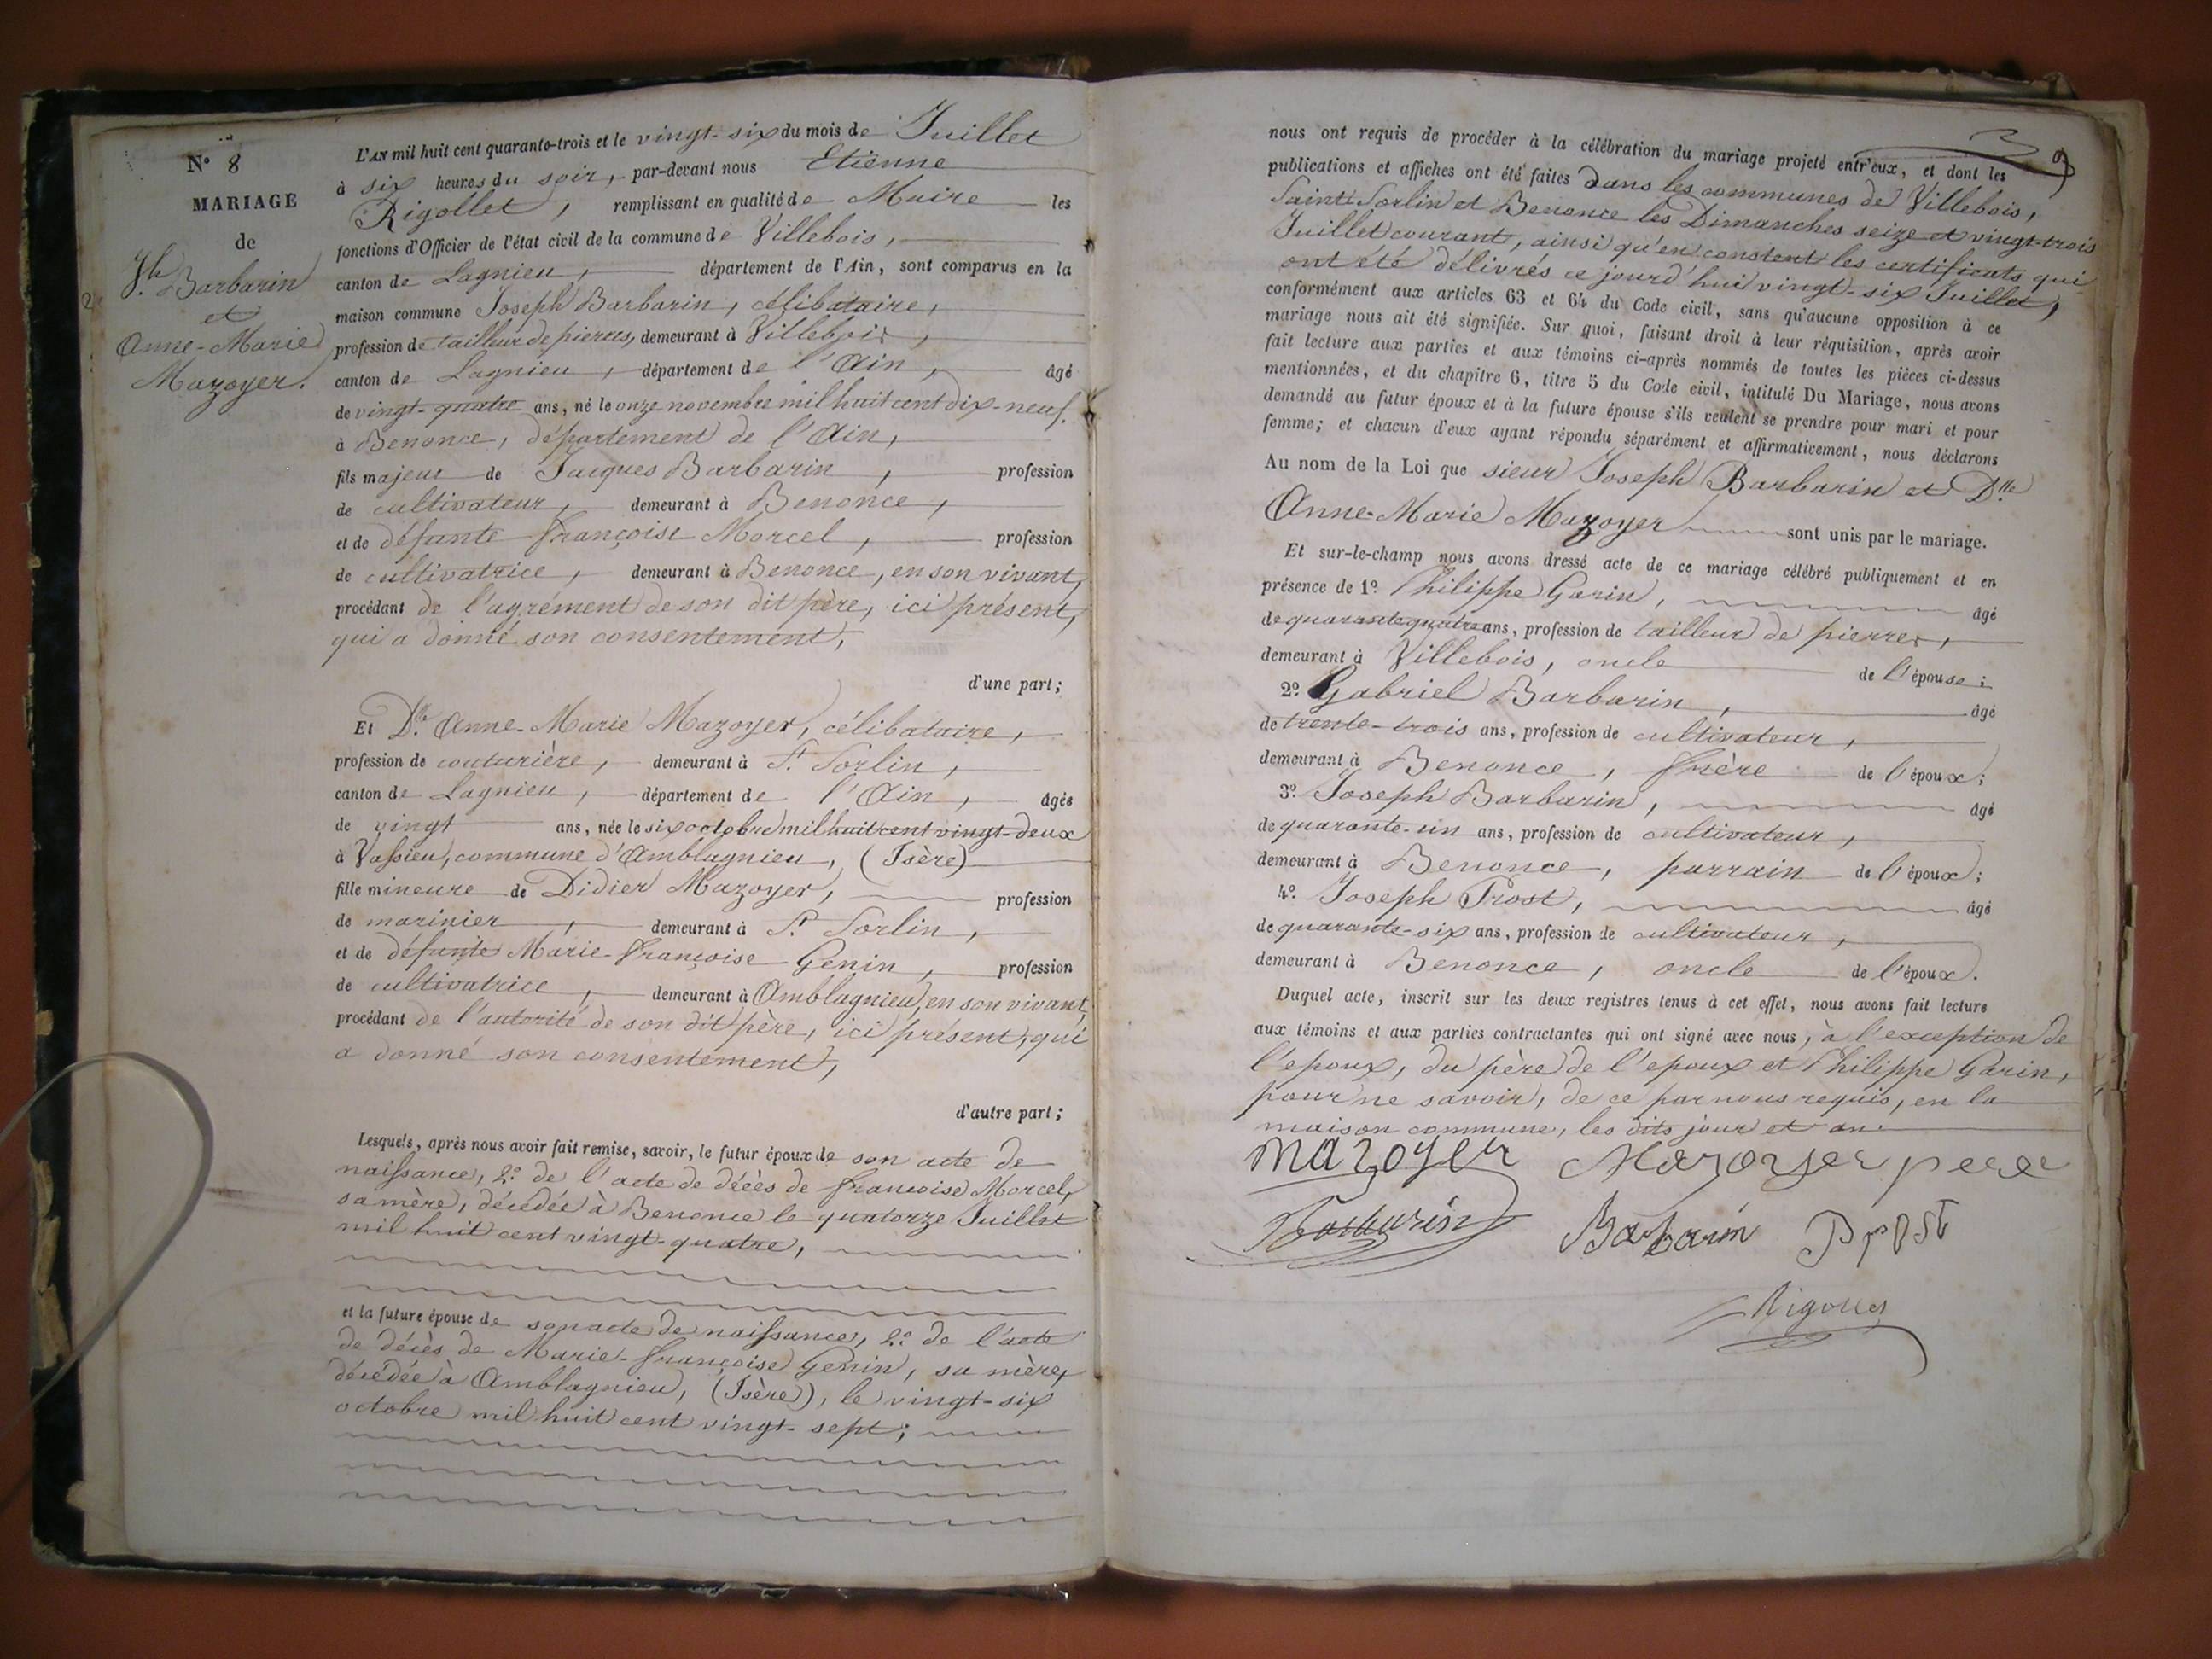 N° 8
MARIAGE
de
Jh. Barbarin
et
Anne-Marie
Mazoyer.
L'AN mil huit cent quarante-trois et le vingt-six du mois de Juillet
à six heures du soir, par-devant nous Etienne
Rigollet, remplissant en qualité de Maire les
fonctions d'Officier de l'état civil de la commune de Villebois,
canton de Lagnieu, département de l'Ain, sont comparus en la
maison commune Joseph Barbarin, célibataire,
profession de tailleur de pierres, demeurant à Villebois,
canton de Lagnieu, département de l'Ain, âgé
de vingt-quatre ans, né le onze novembre mil huit cent dix-neuf.
à Benonce, département de l'Ain,
fils majeur de Jacques Barbarin, profession
de cultivateur, demeurant à Benonce,
et de défunte Françoise Morcel, profession
de cultivatrice, demeurant à Benonce, en son vivant,
procédant de l'agrément de son dit père, ici présent,
qui a donné son consentement,
d'une part;
Et Dlle Anne-Marie Mazoyer, célibataire,
profession de couturière, demeurant à St. Sorlin,
canton de Lagnieu, département de l'Ain, âgée
de vingt ans, née le six octobre mil huit cent vingt-deux
à Vassieu, commune d'Amblagnieu, (Isère)
fille mineure de Didier Mazoyer, profession
de marinier, demeurant à St. Sorlin,
et de défunte Marie-Françoise Genin, profession
de cultivatrice, demeurant à Amblagnieu, en son vivant,
procédant de l'autorité de son dit père, ici présent, qui
a donné son consentement,
d'autre part;
Lesquels, après nous avoir fait remise, savoir, le futur époux de son acte de
naissance, 2° de l'acte de décès de Françoise Morcel,
sa mère, décédée à Benonce le quatorze Juillet
mil huit cent vingt-quatre,
et la future épouse de son acte de naissance, 2° de l'acte
de décès de Marie-Françoise Genin, sa mère,
décédée à Amblagnieu, (Isère), le vingt-six
octobre mil huit cent vingt-sept;
nous ont requis de procéder à la célébration du mariage projeté entr'eux, et dont les
publications et affiches ont été faites dans les communes de Villebois,
Saint Sorlin et Benonce les Dimanches seize et vingt-trois
Juillet courant, ainsi qu'en constent les certificats qui
ont été délivrés ce jourd'hui vingt-six Juillet,
conformément aux articles 63 et 64 du Code civil, sans qu'aucune opposition à ce
mariage nous ait été signifiée. Sur quoi, faisant droit à leur réquisition, après avoir
fait lecture aux parties et aux témoins ci-après nommés de toutes les pièces ci-dessus
mentionnées, et du chapitre 6, titre 5 du Code civil, intitulé Du Mariage, nous avons
demandé au futur époux et à la future épouse s'ils veulent se prendre pour mari et pour
femme; et chacun d'eux ayant répondu séparément et affirmativement, nous déclarons
Au nom de la Loi que sieur Joseph Barbarin et Dlle
Anne-Marie Mazoyer sont unis par le mariage.
Et sur-le-champ nous avons dressé acte de ce mariage célébré publiquement et en
présence de 1° Philippe Garin, âgé
de quarante quatre ans, profession de tailleur de pierres,
demeurant à Villebois, oncle de l'épouse;
2° Gabriel Barbarin, âgé
de trente-trois ans, profession de cultivateur,
demeurant à Benonce, frère de l'époux;
3° Joseph Barbarin, âgé
de quarante-un ans, profession de cultivateur,
demeurant à Benonce, parrain de l'époux;
4° Joseph Prost, âgé
de quarante-six ans, profession de cultivateur,
demeurant à Benonce, oncle de l'époux.
Duquel acte, inscrit sur les deux registres tenus à cet effet, nous avons fait lecture
aux témoins et aux parties contractantes qui ont signé avec nous, à l'exception de
l'epoux, du père de l'epoux et Philippe Garin,
pour ne savoir, de ce par nous requis, en la
maison commune, les dits jour et an.
mazoyer Mazoyer pere
Barbarin Barbarin Prost
Rigollet